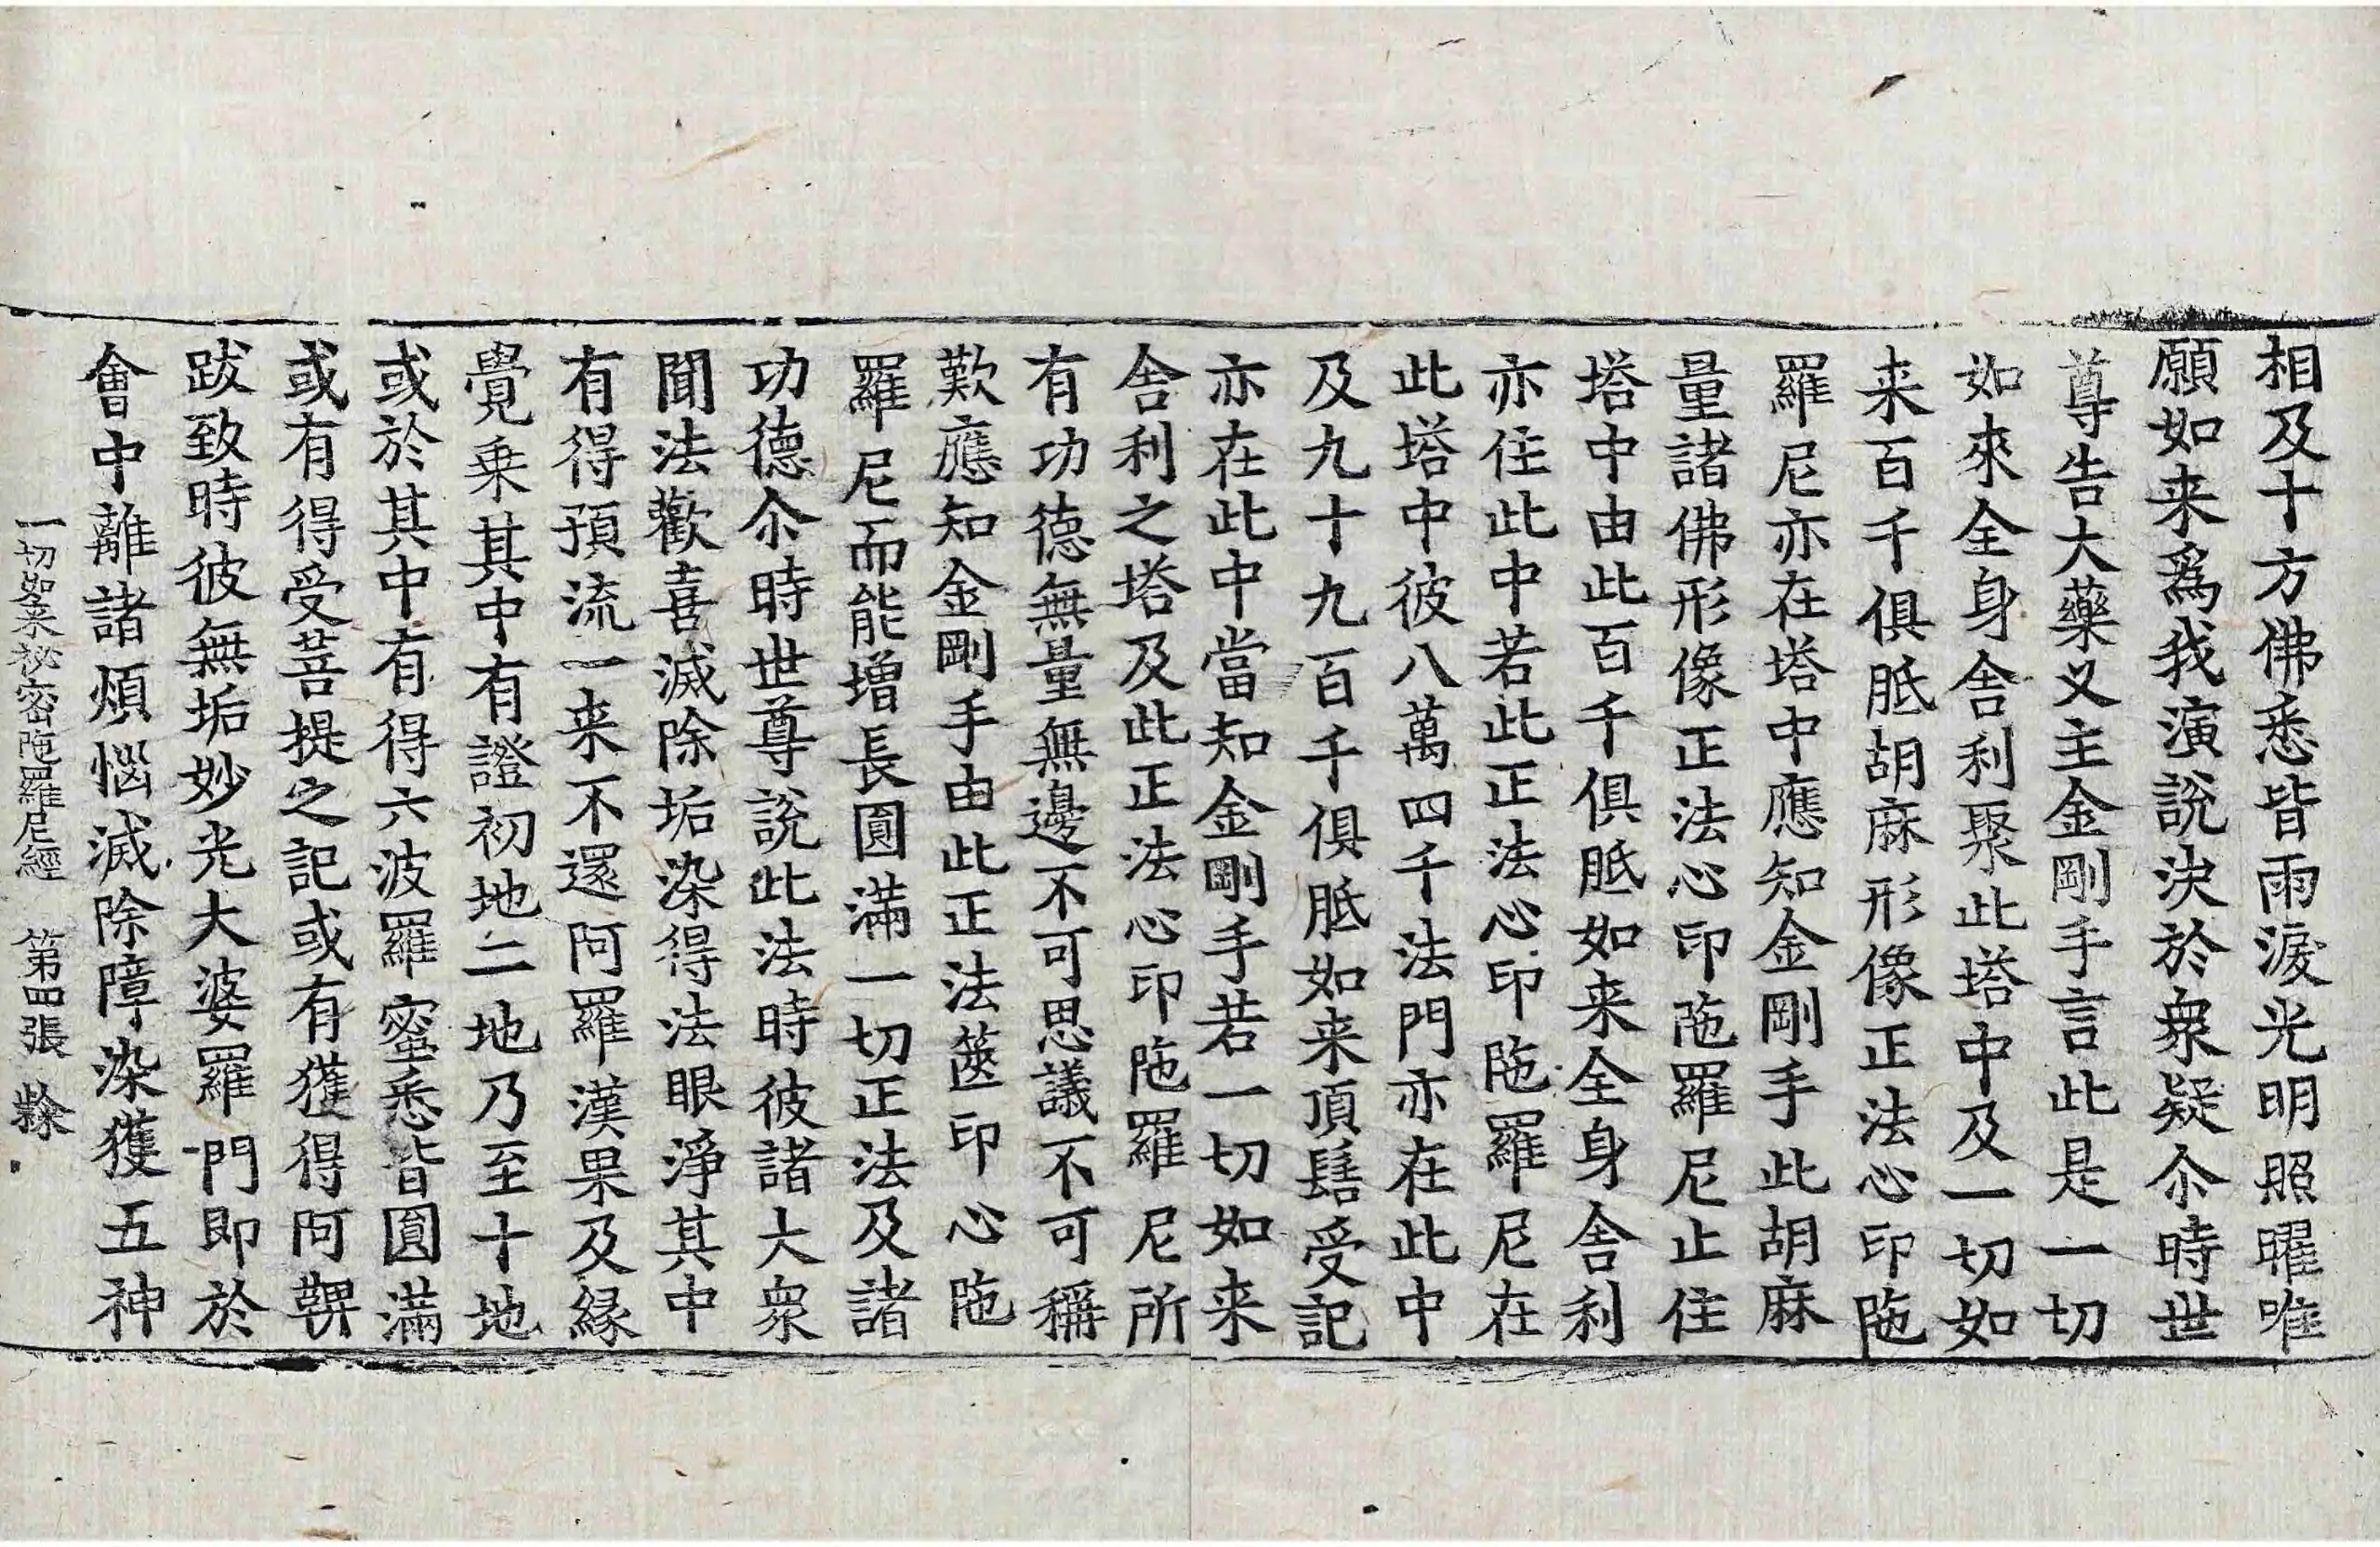 相及十方佛悉皆雨淚光明照曜唯
願如来為我演說決於衆疑尒時世
尊告大藥叉主金剛手言此是一切
如來全身舎利聚此塔中及一切如
来百千俱胝胡麻形像正法心印陁
羅尼亦在塔中應知金剛手此胡麻
量諸佛形像正法心印陁羅尼止住
塔中由此百千俱胝如来全身舎利
亦住此中若此正法心印陁羅尼在
此塔中彼八萬四千法門亦在此中
及九十九百千俱胝如来頂髻受記
亦在此中當知金剛手若一切如来
舎利之塔及此正法心印陁羅尼所
有功德無量無邊不可思議不可稱
歎應知金剛手由此正法篋印心陁
羅尼而能增長圓滿一切正法及諸
功德尒時世尊說此法時彼諸大衆
聞法歡喜滅除垢染得法眼淨其中
有得預流一来不還阿羅漢果及縁
覺乗其中有證初地二地乃至十地
或於其中有得六波羅蜜悉皆圓滿
或有得受菩提之記或有獲得阿鞞
跋致時彼無垢妙光大婆羅門即於
會中離諸煩惱滅除障染獲五神
一切如来祕密陁羅尼經 第四張